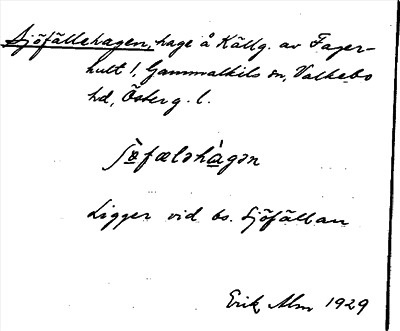 Sjöfällehagen, hage å Källg. av Fager-
hult 1, Gammalkils sn, Valkebo
hd, Österg. l.
ʃö̀fæləhàgən
Ligger vid bs. Sjöfällan
Erik Alm 1929